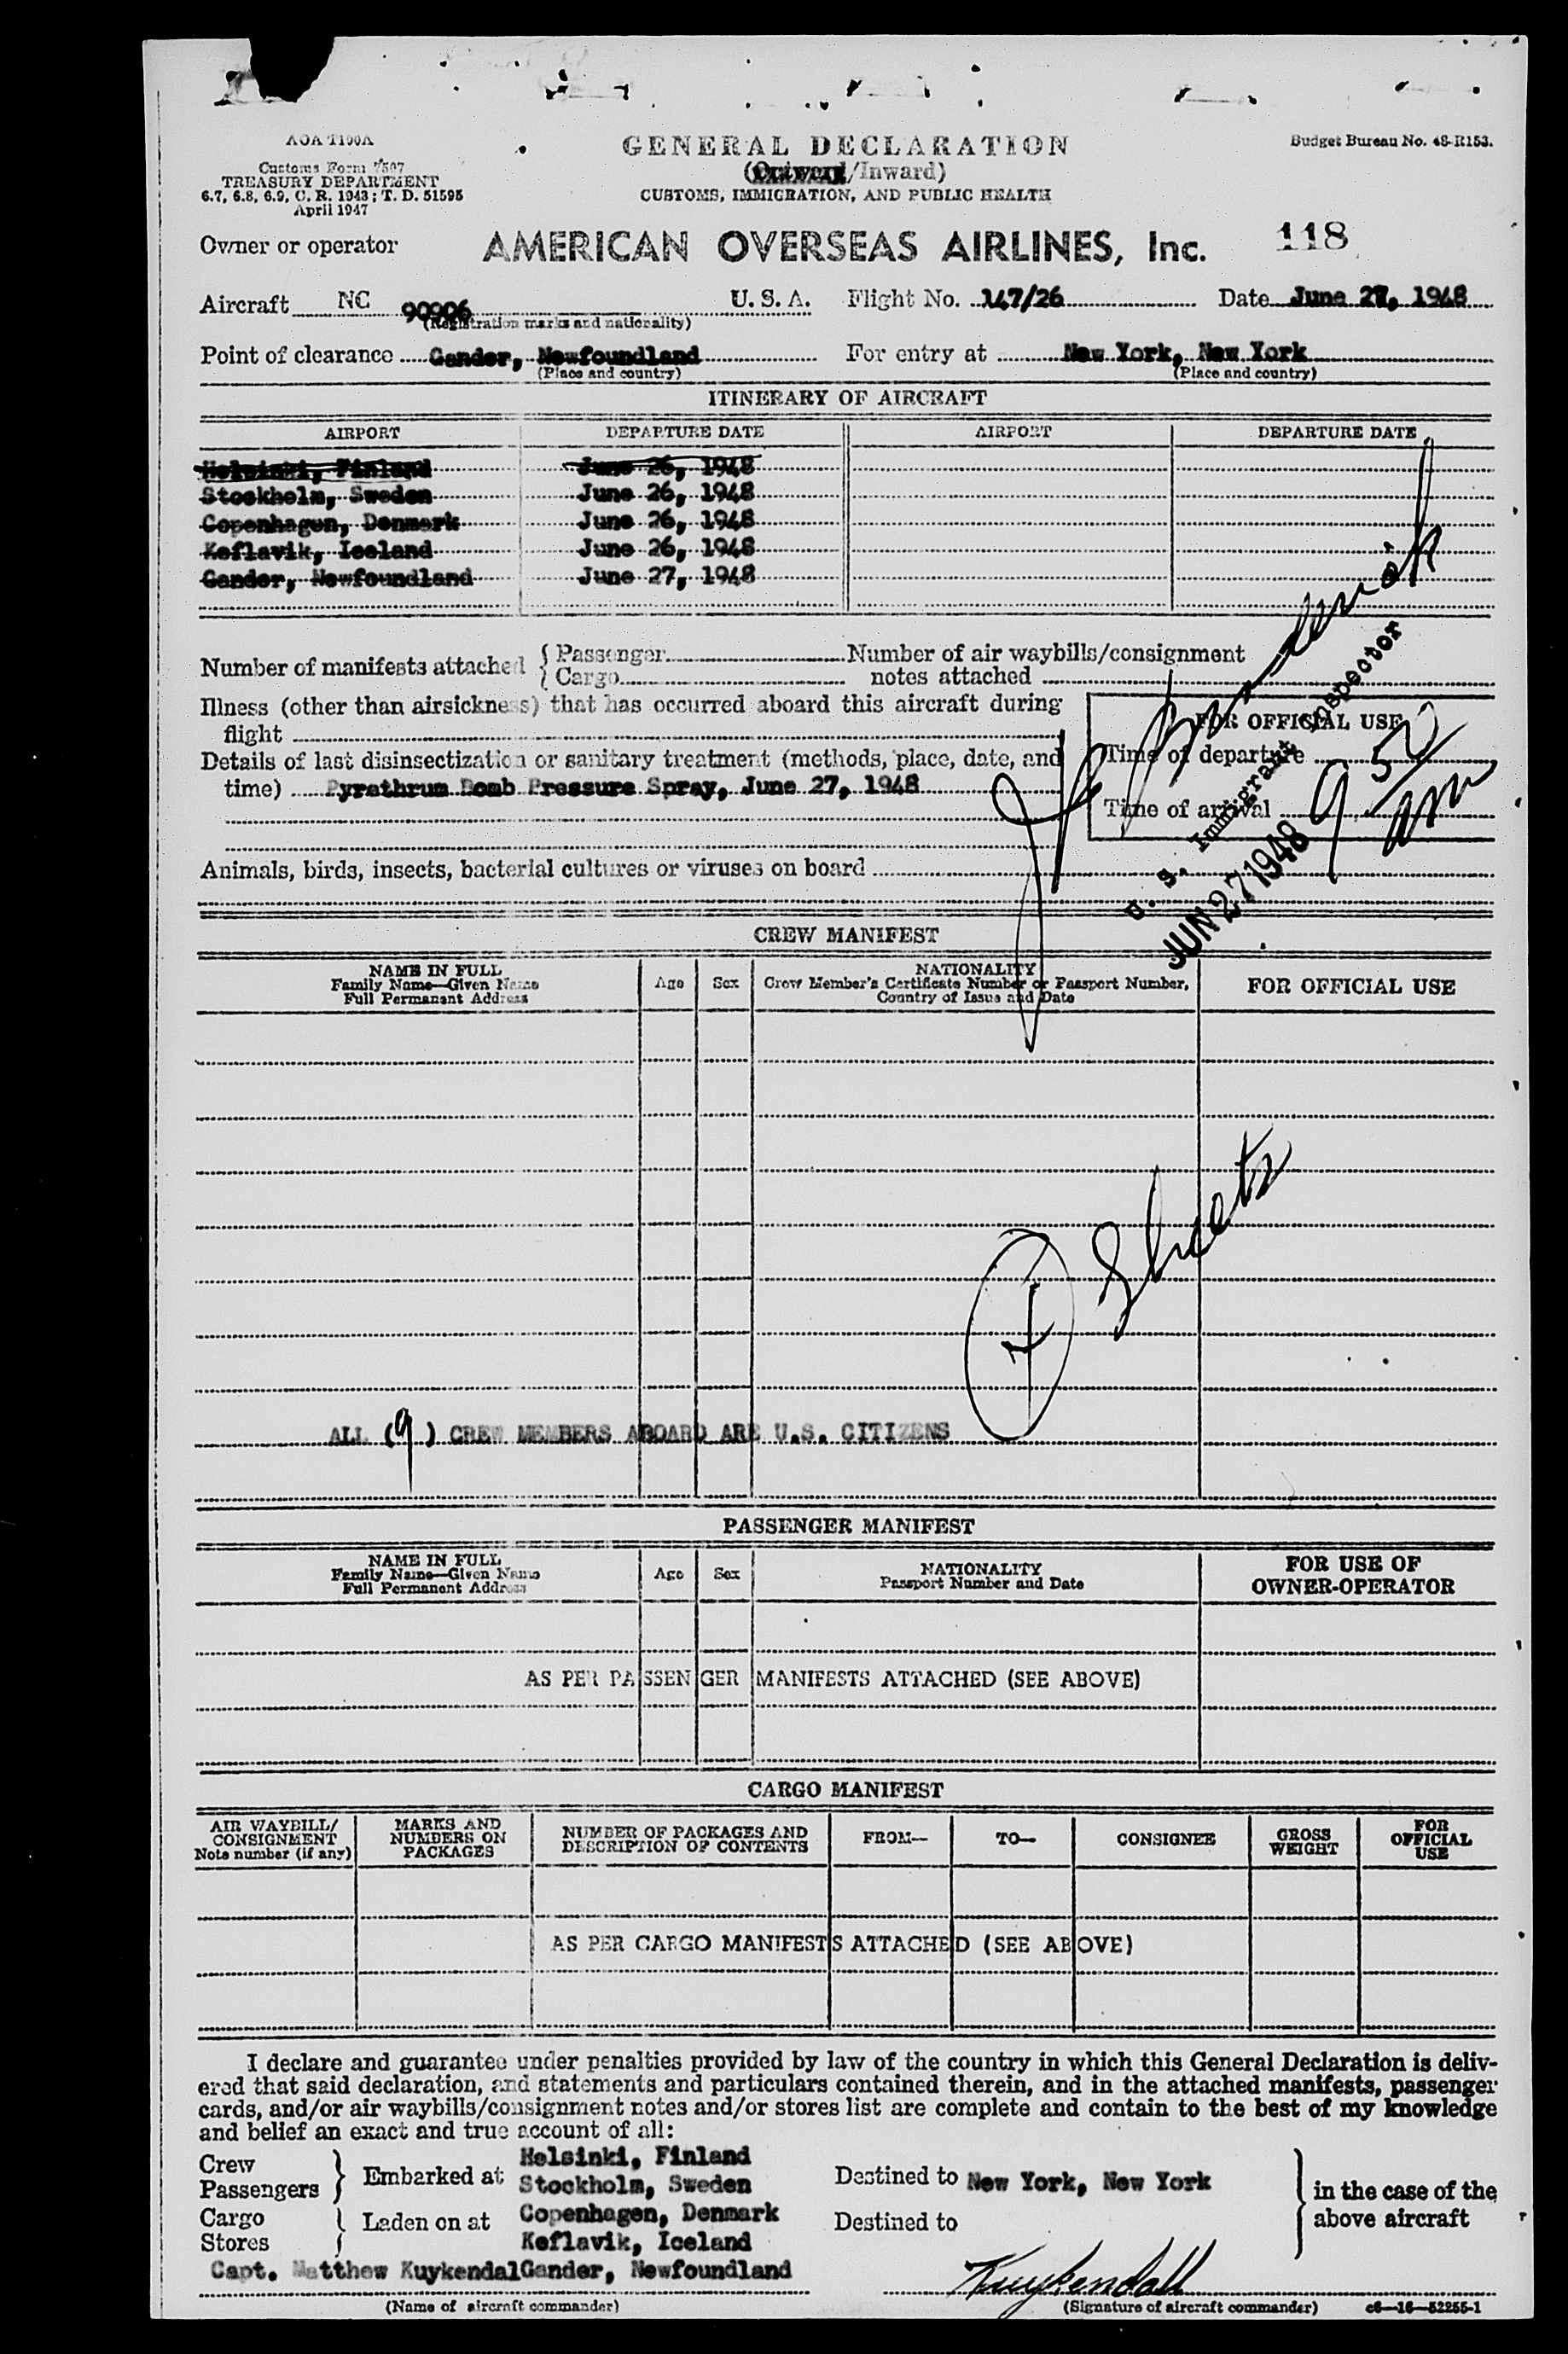 AOA T100A
Customs Form 7507
TREASURY DEPARTMENT
6.7, 6.8, 6.9, C. R. 1943; T. D. 51595
April 1947
GENERAL DECLARATION
(Outward/Inward)
CUSTOMS, IMMIGRATION, AND PUBLIC HEALTH
Budget Bureau No. 48-R153.
Owner or operator AMERICAN OVERSEAS AIRLINES, Inc. 118
Aircraft NC 90906 U. S. A. Flight No. 147/26 Date June 27, 1948
(Registration marks and nationality)
Point of clearance Gander, Newfoundland For entry at New York, New York
(Place and country) (Place and country)
ITINERARY OF AIRCRAFT
AIRPORT DEPARTURE DATE AIRPORT DEPARTURE DATE
Helsinki, Finland June 26, 1948
Stockholm, Sweden June 26, 1948
Copenhagen, Denmark June 26, 1948
Keflavik, Iceland June 26, 1948
Gander, Newfoundland June 27, 1948
Number of manifests attached { Passenger Number of air waybills/consignment
Cargo notes attached
Illness (other than airsickness) that has occurred aboard this aircraft during
flight
FOR OFFICIAL USE
Details of last disinsectization or sanitary treatment (methods, place, date, and
time) Pyrethrum Bomb Pressure Spray, June 27, 1948
Time of departure
Time of arrival 9 50 am
U. S. Immigrant Inspector
JUN 27 1948
Animals, birds, insects, bacterial cultures or viruses on board
CREW MANIFEST
NAME IN FULL Age Sex NATIONALITY FOR OFFICIAL USE
Family Name—Given Name Crew Member's Certificate Number or Passport Number,
Full Permanent Address Country of Issue and Date
7 Sheets
ALL (9) CREW MEMBERS ABOARD ARE U.S. CITIZENS
PASSENGER MANIFEST
NAME IN FULL Age Sex NATIONALITY FOR USE OF
Family Name—Given Name Passport Number and Date OWNER-OPERATOR
Full Permanent Address
AS PER PASSENGER MANIFESTS ATTACHED (SEE ABOVE)
CARGO MANIFEST
AIR WAYBILL/ MARKS AND NUMBER OF PACKAGES AND FROM— TO— CONSIGNEE GROSS FOR
CONSIGNMENT NUMBERS ON DESCRIPTION OF CONTENTS WEIGHT OFFICIAL
Note number (if any) PACKAGES USE
AS PER CARGO MANIFESTS ATTACHED (SEE ABOVE)
I declare and guarantee under penalties provided by law of the country in which this General Declaration is deliv-
ered that said declaration, and statements and particulars contained therein, and in the attached manifests, passenger
cards, and/or air waybills/consignment notes and/or stores list are complete and contain to the best of my knowledge
and belief an exact and true account of all:
Helsinki, Finland
Crew
Passengers } Embarked at Stockholm, Sweden Destined to New York, New York } in the case of the
Cargo Copenhagen, Denmark above aircraft
Stores } Laden on at Keflavik, Iceland Destined to
Capt. Matthew Kuykendal Gander, Newfoundland Kuykendall
(Name of aircraft commander) (Signature of aircraft commander) c6—16—52255-1